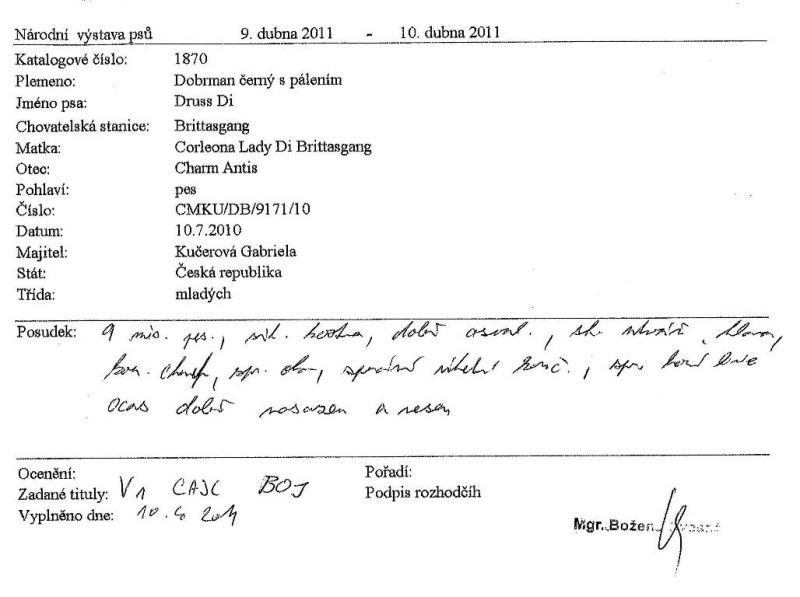 Národní výstava psů 9. dubna 2011 - 10. dubna 2011
Katalogové číslo: 1870
Plemeno: Dobrman černý s pálením
Jméno psa: Druss Di
Chovatelská stanice: Brittasgang
Matka: Corleona Lady Di Brittasgang
Otec: Charm Antis
Pohlaví: pes
Číslo: CMKU/DB/9171/10
Datum: 10.7.2010
Majitel: Kučerová Gabriela
Stát: Česká republika
Třída: mladých
Posudek: 9 měs. pes., sil. kostra, dobře osval.,
spr.
ocas dobře nasazen a nesen
Ocenění: Pořadí:
Zadané tituly: V1 CAJC BOJ Podpis rozhodčíh
Vyplněno dne: 10. 4. 2011
Mgr. Božen